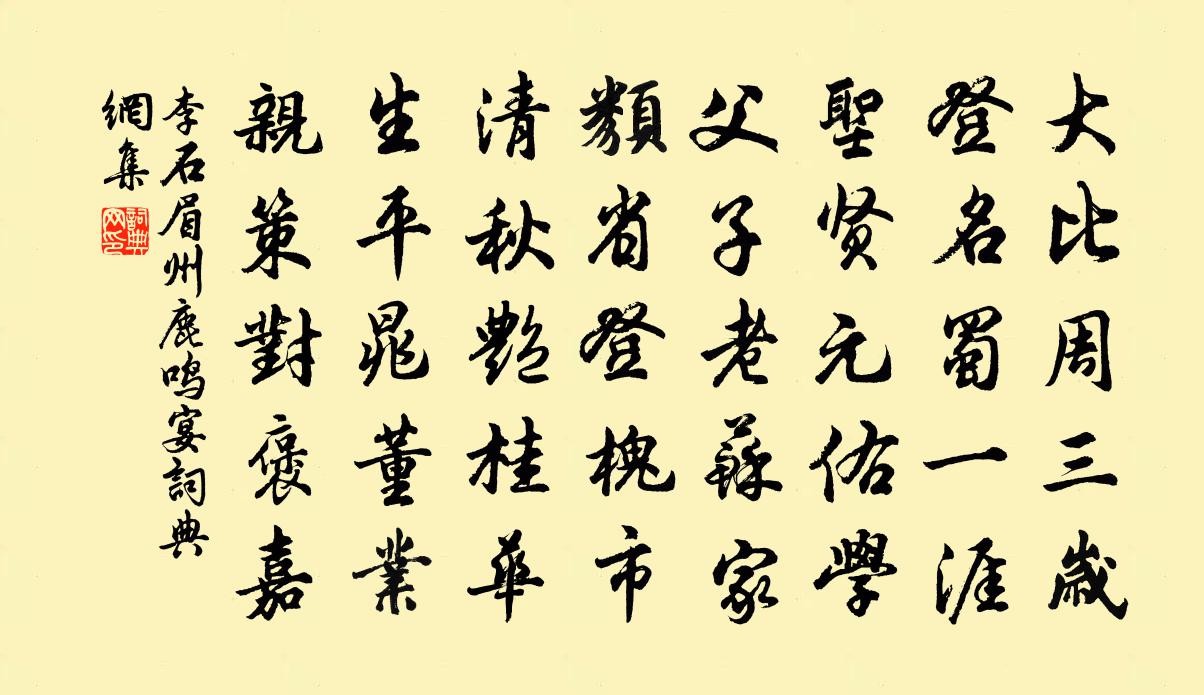 大比周三歲
登名蜀一涯
聖贤元佑學
父子老蘇家
類省登槐市
清秋艷桂華
生平晁董業
親策對褒嘉
李石眉州鹿鳴宴詞典
網集
詞典
网印